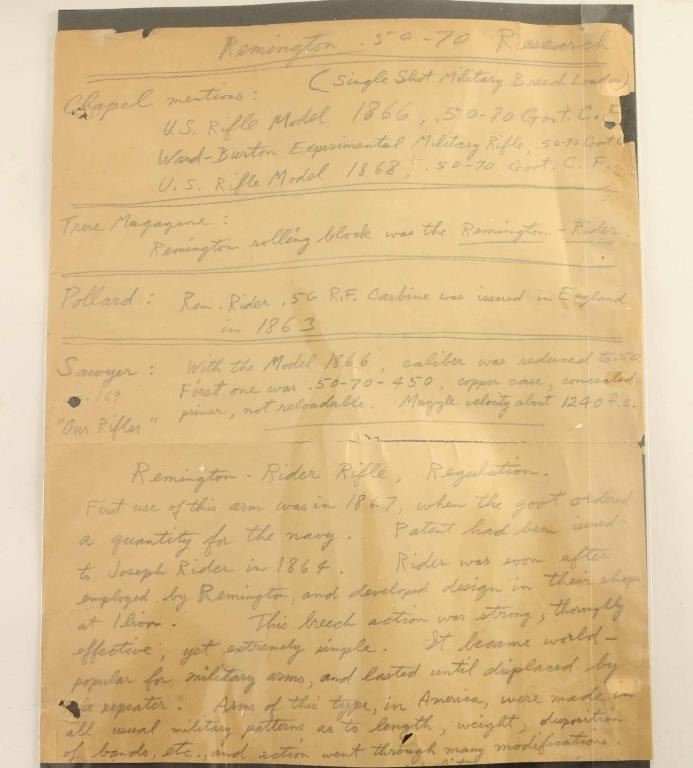 Remington .50-70 Research
(Single Shot Military Breech Loader)
Chapel mentions:
U.S. Rifle Model 1866, .50-70 Govt. C.F.
Ward-Burton Experimental Military Rifle, .50-70 Govt
U.S. Rifle Model 1868, .50-70 Govt. C. F.
True Magazine:
Remington rolling block was the Remington-Rider.
Pollard: Rem. Rider .56 R.F. Carbine was issued in England
in 1863
Sawyer: With the Model 1866, caliber was reduced to .50.
p. 169 First one was .50-70-450, copper case, concealed
primer, not reloadable. Muzzle velocity about 1240 f.s.
"Our Rifles"
Remington-Rider Rifle, Regulation.
First use of this arm was in 1867, when the govt ordered
a quantity for the navy. Patent had been issued
to Joseph Rider in 1864. Rider was soon after
employed by Remington, and developed design in their shops
at Ilion. This breech action was strong, thoroughly
effective, yet extremely simple. It became world-
popular for military arms, and lasted until displaced by
repeater. Arms of this type, in America, were made in
all usual military patterns as to length, weight, disposition
of bands, etc., and action went through many modifications.